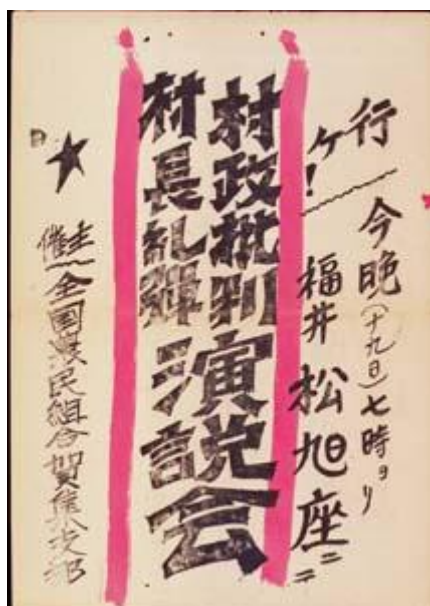 行ケ！
今晩(十九日)七時ヨリ
福井 松旭座ニ
村政批判
村長糺弾
演説会
主催 全国農民組合賀集支部